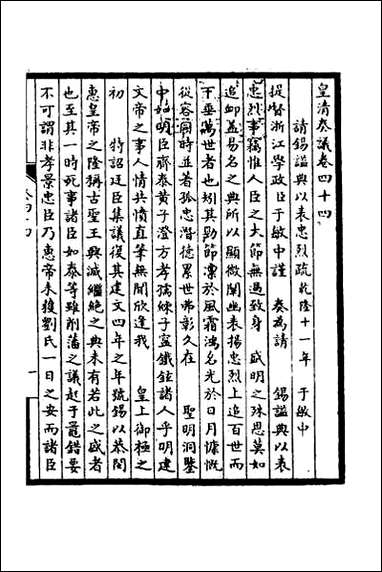 皇清奏議卷四十四
請錫謚典以表忠烈疏乾隆十一年 于敏中
提督浙江學政臣于敏中謹 奏為請 錫謚典以表
忠烈事竊惟人臣之大節無過致身 盛明之殊恩莫如
追卹蓋易名之典所以顯微闡幽表揚忠烈上追百世而
下垂萬世者也矧其勁節凜於風霜鴻名光於日月慷慨
從容同時並著孤忠潛德累世弗彰久在 聖明洞鑒
中如明臣齊泰黃子澄方孝孺練子寧鐵鉉諸人乎明建
文帝之事人情共憤直筆無聞欣逢我 皇上御極之
初 特詔廷臣集議復其建文四年之年號錫以恭閔
惠皇帝之隆稱古聖王興滅繼絕之典未有若此之盛者
也至其一時死事諸臣如泰等雖削藩之議起于鼂錯要
不可謂非孝景忠臣乃惠帝未獲劉氏一日之安而諸臣
卷四十四
一